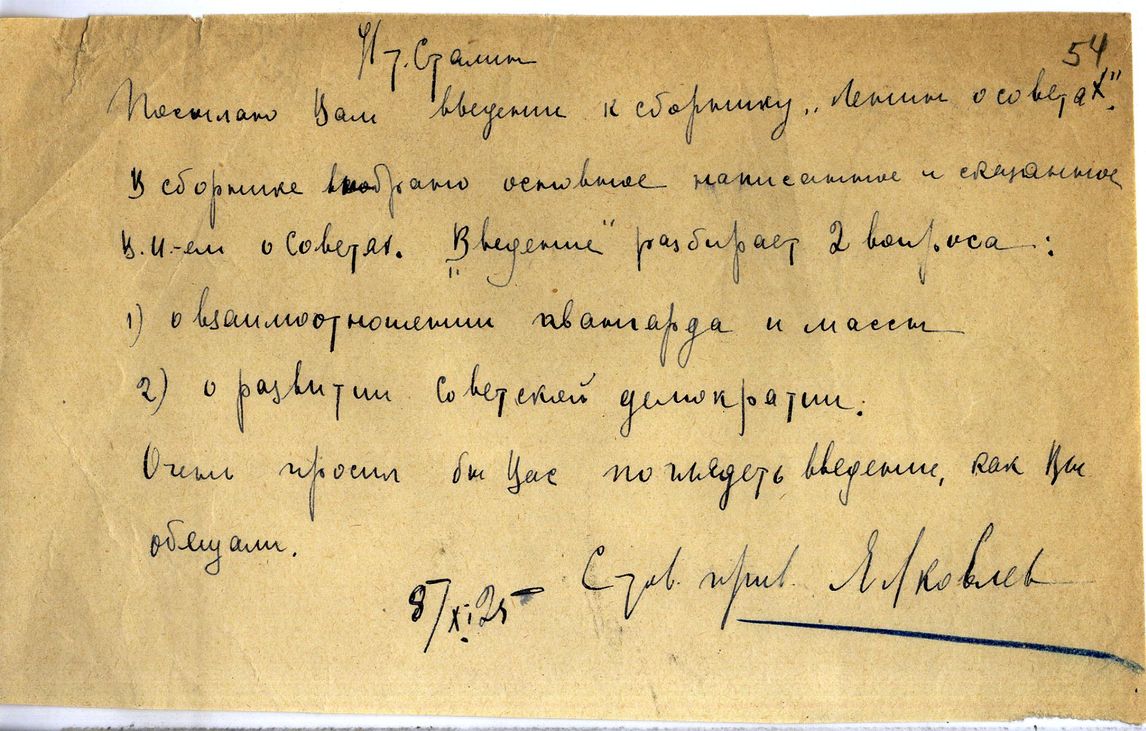 54
т. Сталин
Посылаю Вам введение к сборнику „Ленин о советах".
В сборнике собрано основное написанное и сказанное
В.И-ем о Советах. „Введение" разбирает 2 вопроса:
1) о взаимоотношении авангарда и массы
2) о развитии советской демократии.
Очень просил бы Вас поглядеть введение, как Вы
обещали.
С тов. прив. Я Яковлев
8/XI 25